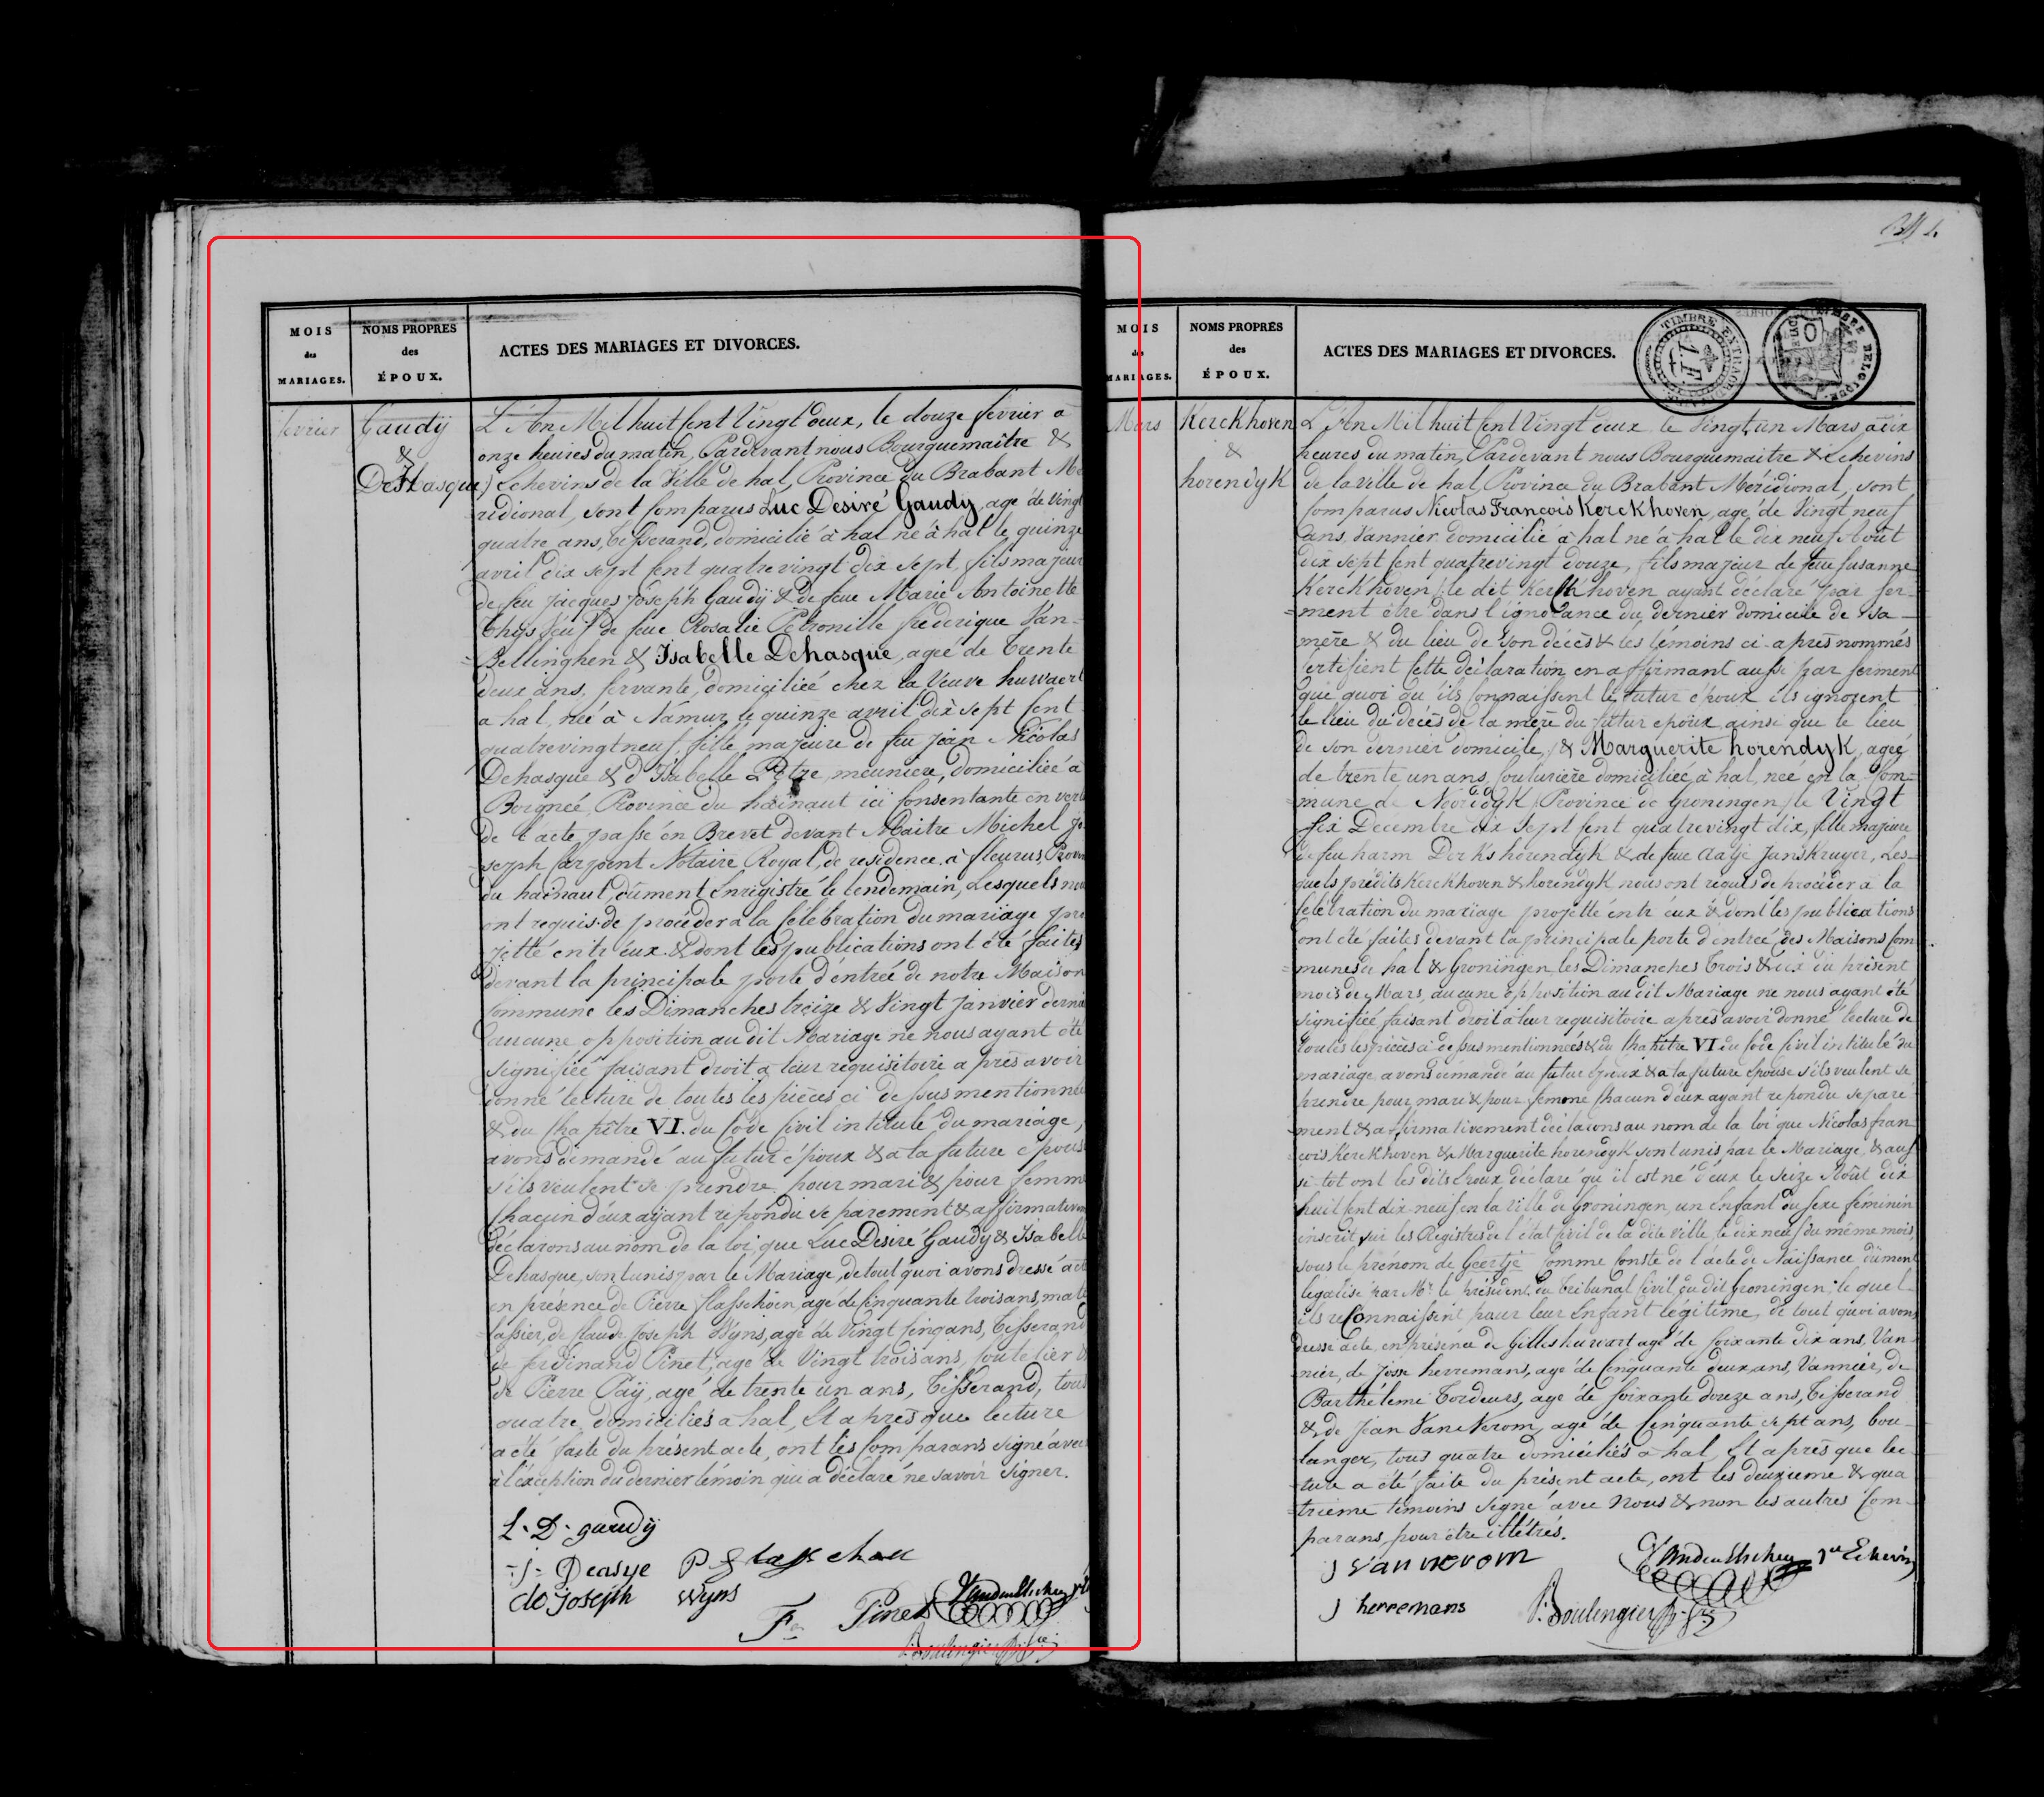 MOIS
des
MARIAGES.
NOMS PROPRES
des
ÉPOUX.
ACTES DES MARIAGES ET DIVORCES.
fevrier
Gaudÿ
&
Dehasque
L'An Mil huit cent Vingt deux, le douze fevrier à
onze heures du matin, Pardevant nous Bourguemaître &
Echevins de la Ville de hal, Province du Brabant Mé
ridional, sont comparus Luc Desiré Gaudÿ, agé de vingt
quatre ans, tisserand, domicilié à hal né à hal le quinze
avril dix sept cent quatrevingt dix sept, fils majeur
de feu Jacques Joseph Gaudÿ & de feue Marie Antoinette
Thijs Veuf de feue Rosalie Petronille frederique Van-
Bellinghen & Isabelle Dehasque, ageé de trente
deux ans, servante, domiciliée chez la Veuve huwaert
a hal, neé à Namur le quinze avril dix sept cent
quatrevingt neuf, fille majeure de feu Jean Nicolas
Dehasque & d'Isabelle meuniere, domiciliée à
Boigneé, Province du hainaut ici consentante en vertu
de l'acte passé en Brevet devant Maitre Michel Jo
seph Carpent Notaire Royal, de residence à fleurus, Provin
du hainaut, dûment Enregistré le lendemain, Lesquels nous
ont requis de procéder à la Célébration du mariage pro
jetté entr'eux & dont les publications ont été faites
devant la principale porte d'entrée de notre Maison
Commune les Dimanches treize & Vingt Janvier dernier
aucune opposition au dit Mariage ne nous ayant été
signifiée faisant droit a leur requisitoire après avoir
donné lecture de toutes les pièces ci dessus mentionnée
& du Chapître VI. du Code Civil intitulé du mariage,
avons demandé au futur époux & a la future epouse
s'ils veulent se prendre pour mari & pour femme
Chacun d'eux aÿant répondu separement & affirmativem
déclarons au nom de la loi que Luc Désiré Gaudÿ & Isabelle
Dehasque, sont unis par le Mariage, de tout quoi avons dressé acte
en présence de Pierre flasschoen, age de cinquante trois ans, mate
lassier, de Claude Joseph Wyns, agé de vingt cinq ans, tisserand
de ferdinand Pinet, age de Vingt trois ans, coutelier &
de Pierre Paÿ, agé de trente un ans, tisserand, tous
quatre domiciliés a hal, Et après que lecture
a été faite du présent acte, ont les comparans signé avec
à l'exception du dernier témoin qui a déclaré ne savoir signer.
L. D. gaudÿ
Deasye
de Joseph Wyns
F. Pinet
MOIS
des
MARIAGES.
NOMS PROPRES
des
ÉPOUX.
ACTES DES MARIAGES ET DIVORCES.
TIMBRE EXTRAORDINAIRE
TIMBRE BELGIQUE
Mars
Kerckhoven
&
horendyk
L'An Mil huit Cent Vingt deux le Vingt un Mars à dix
heures du matin, Pardevant nous Bourguemaitre & Echevins
de la ville de hal, Province du Brabant Méridional, sont
comparus Nicolas François Kerckhoven, age de Vingt neuf
ans, Vannier domicilié à hal né à hal le dix neuf Août
dix sept cent quatrevingt douze, fils majeur de feue Susanne
Kerckhoven, le dit Kerckhoven ayant déclaré par ser-
ment être dans l'ignorance du dernier domicile de sa
mere & du lieu de son décès & les témoins ci-après nommés
certifient cette declaration en affirmant aussi par serment
que quoi qu'ils connaissent le futur epoux ils ignorent
le lieu du décès de la mere du futur epoux ainsi que le lieu
de son dernier domicile, & Marguerite horendyk, ageé
de trente un ans, couturière domiciliée à hal, neé en la Com-
mune de Noordyk, Province de Groningen, le Vingt
six Décembre dix sept cent quatrevingt dix, fille majeure
de feu harm Derks horendyk & de feue Aatje Jans Kruyer, Les-
quels prédits Kerckhoven & horendyk nous ont requis de procéder à la
Célébration du mariage projetté entr'eux & dont les publications
ont été faites devant la principale porte d'entreé des Maisons Com
munes de hal & Groningen les Dimanches trois & dix du présent
mois de Mars, aucune opposition au dit Mariage ne nous ayant été
signifiée faisant droit à leur requisitoire après avoir donné lecture de
toutes les pièces ci-dessus mentionneés & du Chapitre VI du Code Civil intitulé du
mariage avons demandé au futur Epoux & a la future epouse s'ils veulent se
prendre pour mari & pour femme chacun d'eux ayant repondu separé
ment & affirmativement déclarons au nom de la loi que Nicolas fran
cois Kerckhoven & Marguerite horendyk sont unis par le Mariage, & aus
si-tot ont les dits Epoux déclaré qu'il est né d'eux le seize Août dix
huit cent dix-neuf en la ville de Groningen un Enfant du sexe féminin
inscrit sur les Registres de l'état Civil de la dite ville, le dix neuf du même mois,
sous le prénom de Geertje Comme Conste de l'acte de Naissance dûment
légalisé par Mr. le président du Tribunal Civil du dit Groningen, le quel
ils reconnaissent pour leur Enfant legitime, de tout quoi avons
dressé acte en présence de Gilles huwart agé de soixante dix ans, Van
nier, de Josse herremans, agé de Cinquante deux ans, Vannier, de
Barthélemi Tordeurs, age de soixante douze ans, tisserand
& de Jean Van Nerom, agé de Cinquante sept ans, bou-
langer, tous quatre domiciliés a hal, Et après que lec
ture a été faite du présent acte, ont les deuxieme & qua
trieme témoins signé avec nous & non les autres Com-
parans pour être illétrés.
J Van nerom
J herremans